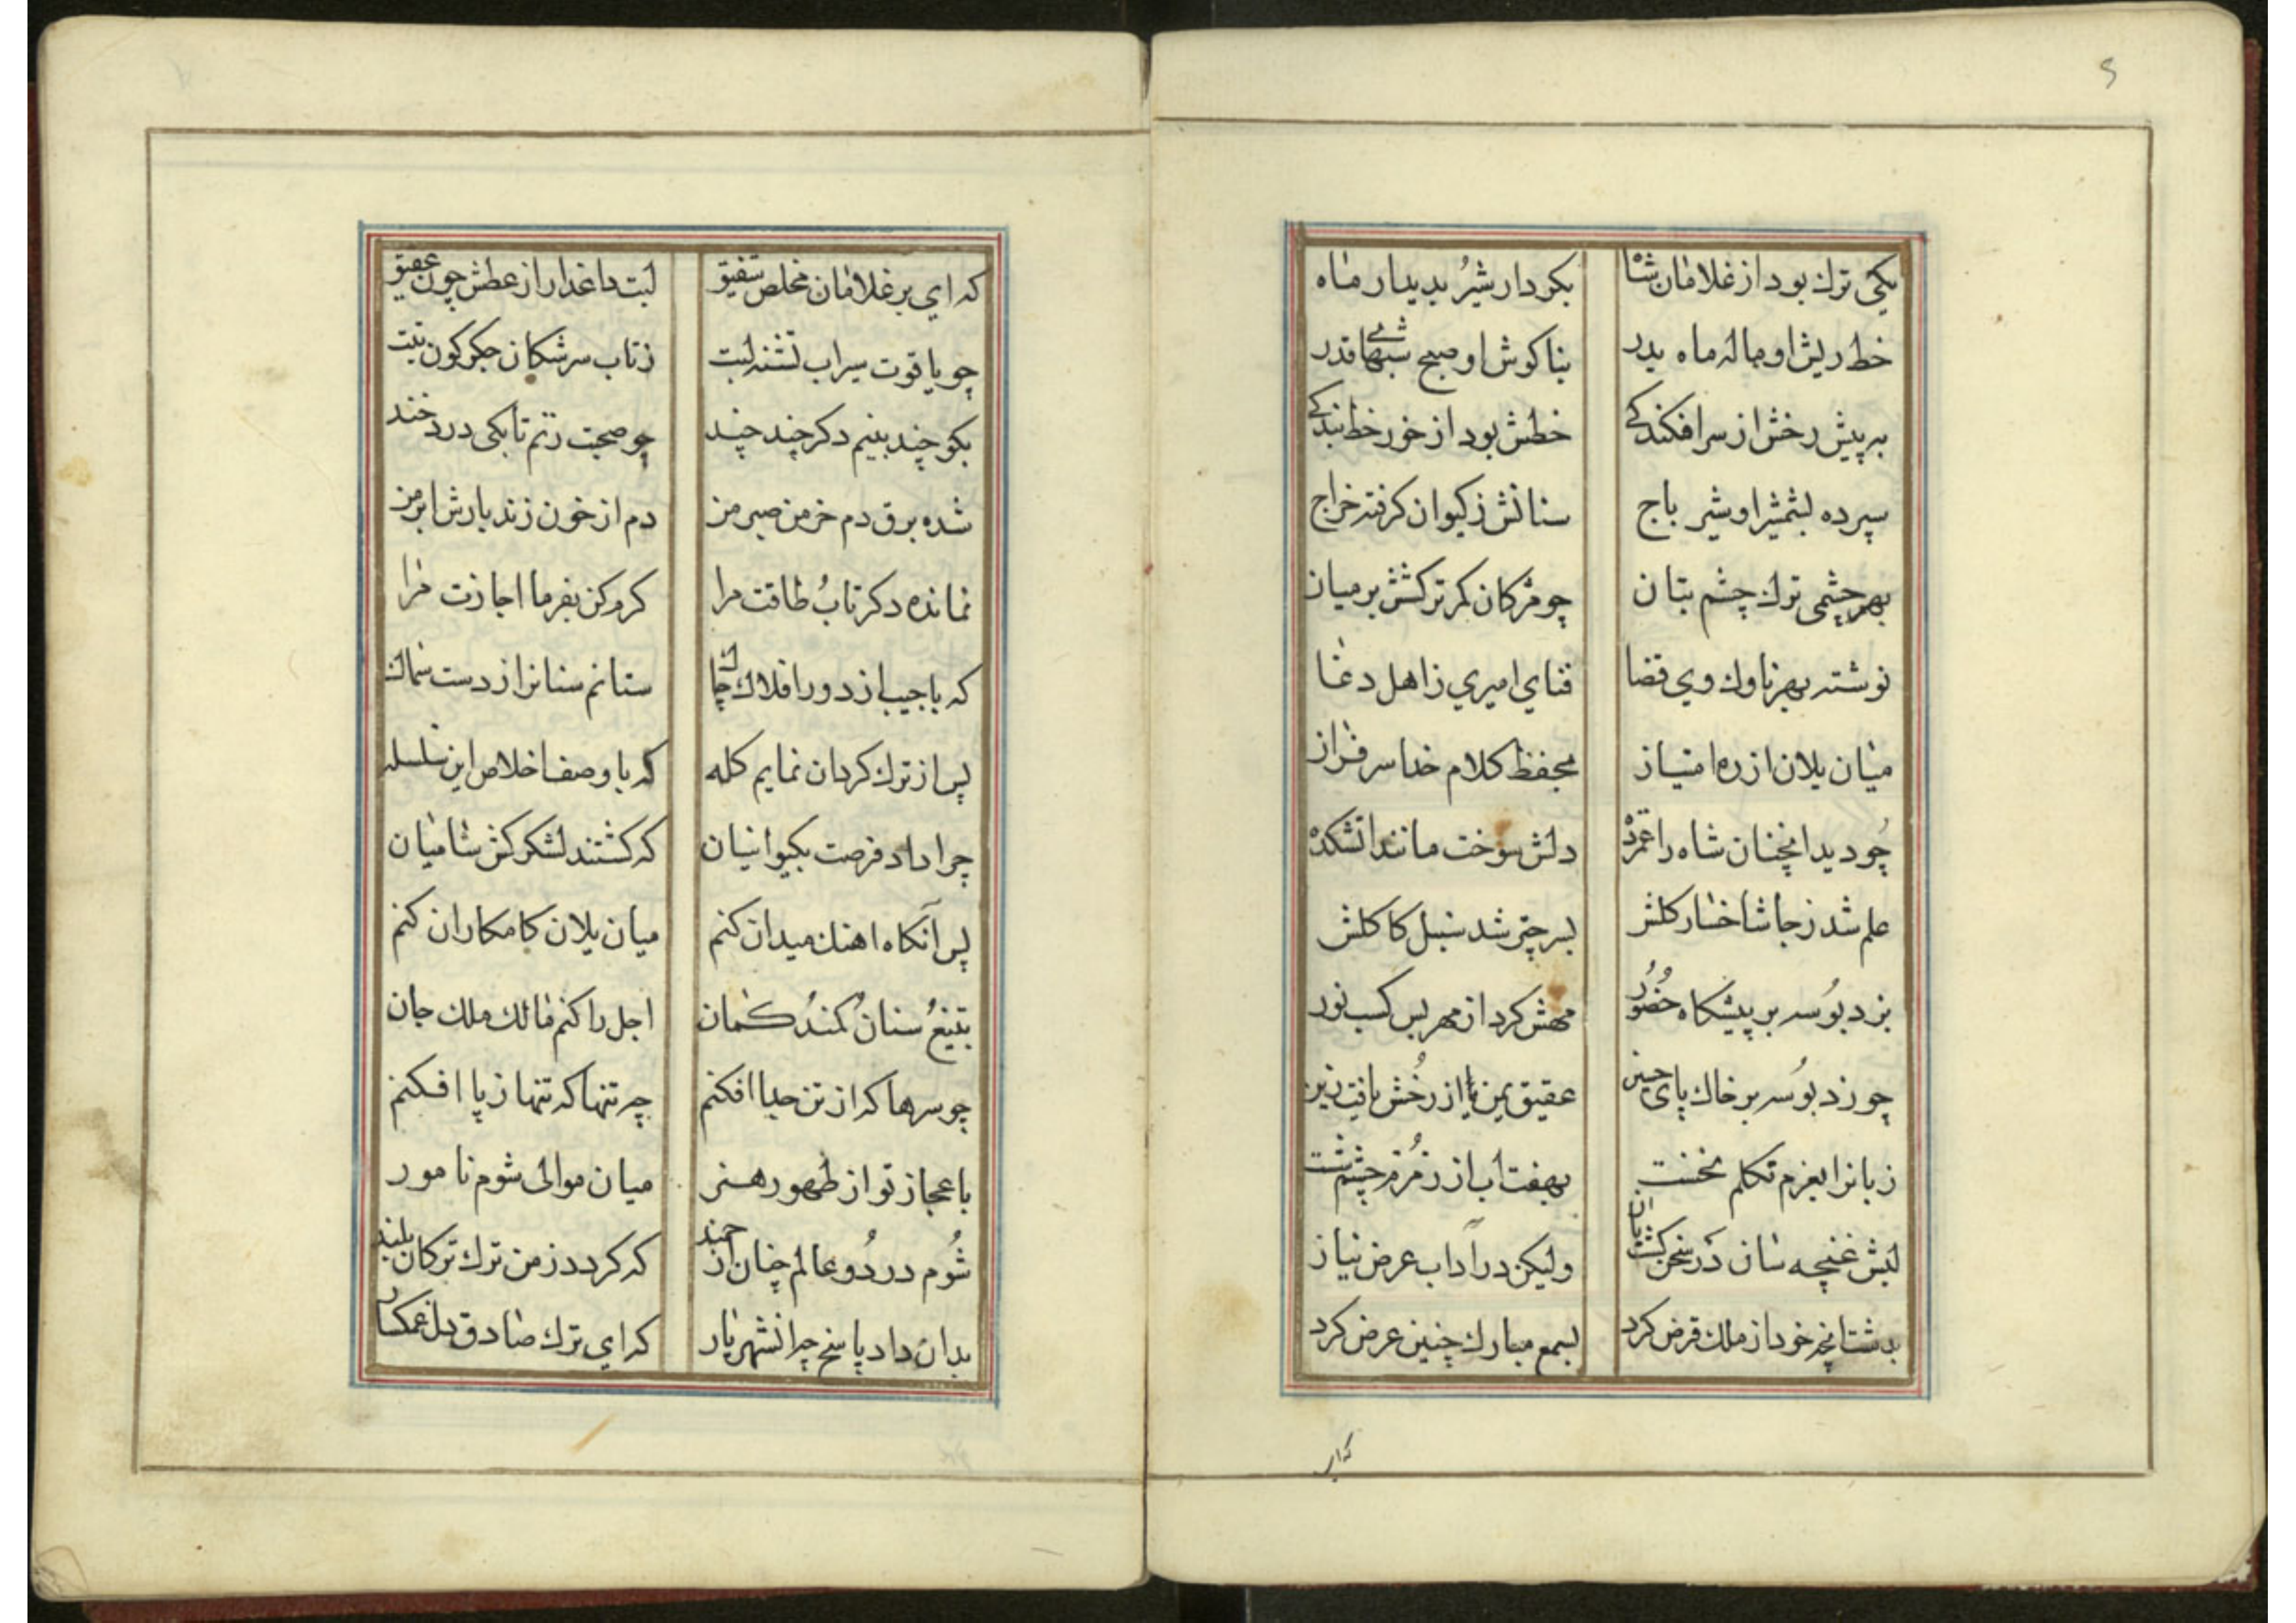 یکی ترك بود از غلامان شاه
بکردار شیرُ بدیدار ماه
خط ریش او هاله ماه بدر
بناکوش او صبح شبهای قدر
به پیش رخش از سرافکندکی
خطش بود از خور خط بندکی
سپرده بشمشیر او شیر باج
سنانش ز کیوان کرفته خراج
بهر چشمی ترك چشم بتان
چو مژکان کمر ترکشش بر میان
نوشته بهر ناوك وی قضا
فنای امیری ز اهل دغا
میان یلان از ره امتیاز
بحفظ کلام خدا سرفراز
چُو دید انچنان شاه را غمزده
دلش سوخت مانند اتشکده
علم شد ز جا شاخسار کلش
بسر چتر شد سنبل کاکلش
بزد بوُسه بر پیشکاه حُضوُر
مهش کرد از مهر بس کسب نور
چو زد بوُسه بر خاك پای
عقیق یمن از رُخش یافت زین
زبانرا بعزم تکلم نخست
بهفت اب از زمُزم چشم شست
لبش غنچه سان در سخن کشت
ولیکن در آداب عرض نیاز
خود از ملك قرض کرد
بسمع مبارك چنین عرض کرد
که ای
5
که ای بر غلامان مخلص شفیق
لبت داغدار از عطش چون عقیق
چو یاقوت سیراب تشنه لبت
ز تاب سرشکان جکرکون
بکو چند بینم دکر چند چند
چو صحبت زنم تا بکی درد خند
شده برق دم خرمن صبر من
دم از خون زند بارش ابر من
نمانده دکر تابُ طاقت مرا
کرم کن بفرما اجازت مرا
که یا جیب از دور افلاك
ستانم سنانرا از دست سماك
پس از ترك کردان نمایم کله
که با وصف اخلاص این سلسله
چرا داد فرصت بکیوانیان
که کشتند لشکرکش شامیان
پس آنکاه اهنك میدان کنم
میان یلان کامکاران کنم
بتیغُ سنانُ کمندُ کمان
اجل را کنم مالك ملك جان
چو سرها که از تن جدا افکنم
چه تنها که تنها ز پا افکنم
باعجاز تو از ظهور هنر
میان موالی شوم نامور
شُوم در دُو عالم چنان ارجمند
که کردد ز من ترك ترکان بلند
بدان داد پاسخ چرا نشهریار
که ای ترك صادق دل غمکسار